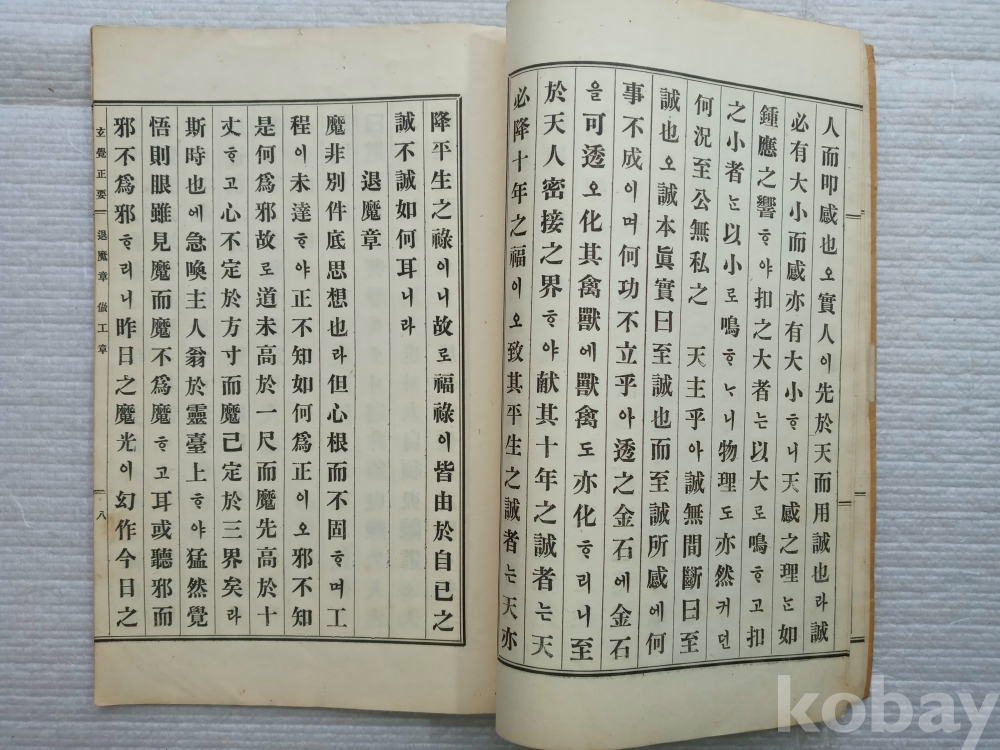 人而叩感也오實人이先於天而用誠也라誠
必有大小而感亦有大小ᄒᆞ니天感之理ᄂᆞᆫ如
鍾應之響ᄒᆞ야扣之大者는以大로鳴ᄒᆞ고扣
之小者ᄂᆞᆫ以小로鳴ᄒᆞᄂᆞ니物理도亦然커던
何況至公無私之 天主乎아誠無間斷曰至
誠也오誠本眞實曰至誠也而至誠所感에何
事不成이며何功不立乎아透之金石에金石
을可透오化其禽獸에獸禽도亦化ᄒᆞ리니至
於天人密接之界ᄒᆞ야献其十年之誠者는天
必降十年之福이오致其平生之誠者는天亦
降平生之祿이니故로福祿이皆由於自己之
誠不誠如何耳니라
退魔章
魔非別件底思想也라但心根而不固ᄒᆞ며工
程이未達ᄒᆞ야正不知如何爲正이오邪不知
是何爲邪故로道未高於一尺而魔先高於十
丈ᄒᆞ고心不定於方寸而魔已定於三界矣라
斯時也에急喚主人翁於靈臺上ᄒᆞ야猛然覺
悟則眼雖見魔而魔不爲魔ᄒᆞ고耳或聽邪而
邪不爲邪ᄒᆞ리니昨日之魔光이幻作今日之
玄覺正要 退魔章 做工章 八
kobay